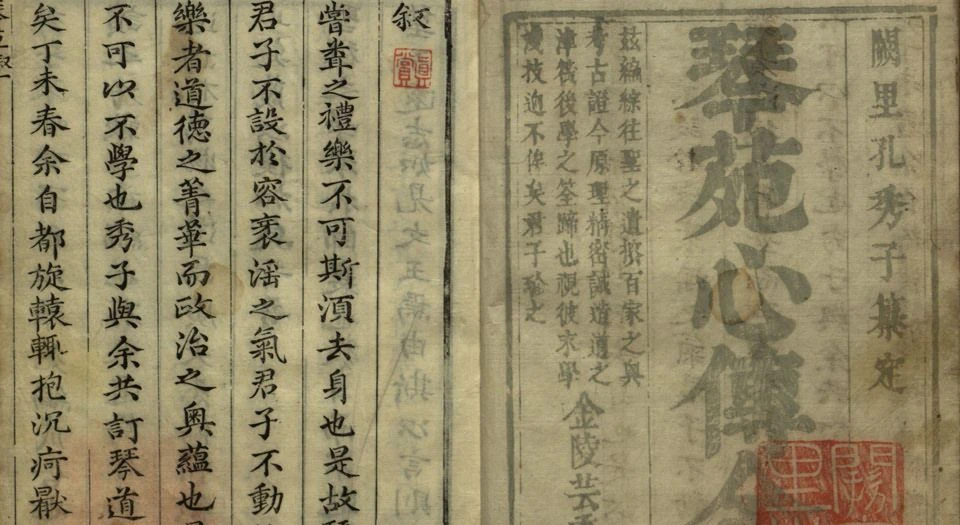 闕里孔秀子彙定
琴苑心傳全
茲編綜往聖之遺撰百家之奧
考古證今原理精密誠造道之
津筏後學之筌蹄也視彼求學
淺技迥不侔矣君子珍之
金陵芸
叙
真賞
嘗之禮樂不可斯湏去身也是故
君子不設於容袤滛之氣君子不動
樂者道德之菁華而政治之奥蘊也
不可以不學也秀子與余共訂琴道
矣丁未春余自都旋轅輙抱沉疴厭